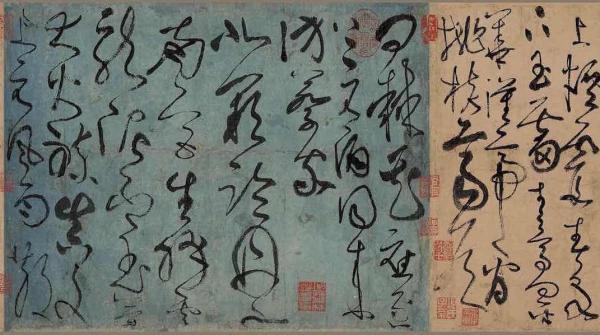 上煙霞春泉
下玉霤青鳥向金
華漢帝看
桃核齊侯
問棘花應逐
上元酒同來
訪蔡家
北闕臨丹水
南宮生絳雲
龍泥印玉簡
大火煉真文
上元風雨散